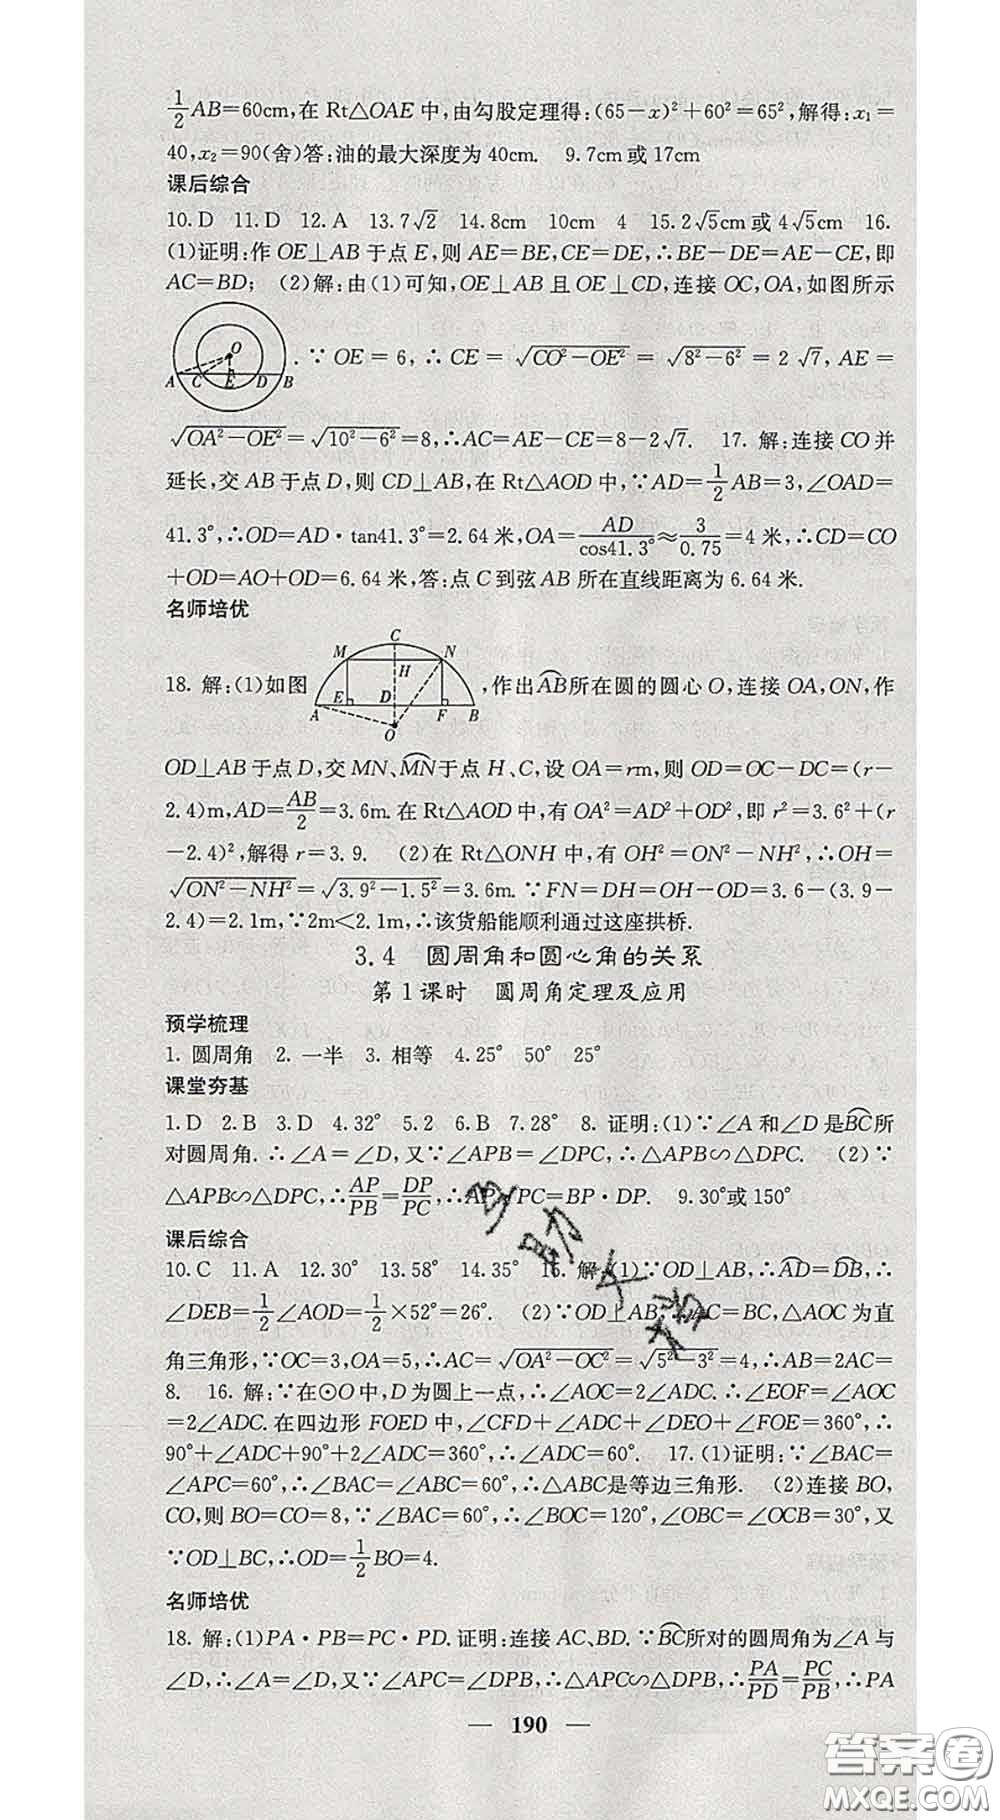 1/2AB=60cm,在 Rt△OAE 中,由勾股定理得:(65-x)²+60²=65²,解得:x₁=
40,x₂=90(舍)答:油的最大深度为 40cm. 9.7cm或17cm
课后综合
10.D 11.D 12.A 13.7√2 14.8cm 10cm 4 15.2√5cm或4√5cm 16.
(1)证明:作 OE⊥AB 于点 E,则 AE=BE,CE=DE,∴BE-DE=AE-CE,即
AC=BD; (2)解:由(1)可知,OE⊥AB 且 OE⊥CD,连接 OC,OA,如图所示
O A C E D B .∵OE=6,∴CE=√(CO²-OE²)=√(8²-6²)=2√7,AE=
√(OA²-OE²)=√(10²-6²)=8,∴AC=AE-CE=8-2√7. 17. 解:连接 CO 并
延长,交 AB 于点 D,则 CD⊥AB,在 Rt△AOD 中,∵AD=1/2AB=3,∠OAD=
41.3°,∴OD=AD·tan41.3°=2.64 米,OA=AD/cos41.3°≈3/0.75=4 米,∴CD=CO
+OD=AO+OD=6.64 米,答:点 C 到弦 AB 所在直线距离为 6.64 米.
名师培优
18. 解:(1)如图 C M N H E D F A B O ,作出⌒AB所在圆的圆心 O,连接 OA,ON,作
OD⊥AB 于点 D,交 MN、⌒MN于点 H、C,设 OA=rm,则 OD=OC-DC=(r-
2.4)m,AD=AB/2=3.6m.在 Rt△AOD 中,有 OA²=AD²+OD²,即 r²=3.6²+(r
-2.4)²,解得 r=3.9. (2)在 Rt△ONH 中,有 OH²=ON²-NH²,∴OH=
√(ON²-NH²)=√(3.9²-1.5²)=3.6m.∵FN=DH=OH-OD=3.6-(3.9-
2.4)=2.1m,∵2m<2.1m,∴该货船能顺利通过这座拱桥.
3.4 圆周角和圆心角的关系
第1课时 圆周角定理及应用
预学梳理
1. 圆周角 2. 一半 3. 相等 4.25° 50° 25°
课堂夯基
1.D 2.B 3.D 4.32° 5.2 6.B 7.28° 8. 证明:(1)∵∠A 和∠D 是⌒BC所
对圆周角.∴∠A=∠D,又∵∠APB=∠DPC,∴△APB∽△DPC. (2)∵
△APB∽△DPC,∴AP/PB=DP/PC,∴AP·PC=BP·DP. 9.30°或150°
课后综合
10.C 11.A 12.30° 13.58° 14.35° 15. 解:(1)∵OD⊥AB,∴⌒AD=⌒DB,∴
∠DEB=1/2∠AOD=1/2×52°=26°. (2)∵OD⊥AB,∴AC=BC,△AOC 为直
角三角形,∵OC=3,OA=5,∴AC=√(OA²-OC²)=√(5²-3²)=4,∴AB=2AC=
8. 16. 解:∵在⊙O 中,D 为圆上一点,∴∠AOC=2∠ADC.∴∠EOF=∠AOC
=2∠ADC.在四边形 FOED 中,∠CFD+∠ADC+∠DEO+∠FOE=360°,∴
90°+∠ADC+90°+2∠ADC=360°,∴∠ADC=60°. 17.(1)证明:∵∠BAC=
∠APC=60°,∠APC=∠ABC,∴∠ABC=60°,∴△ABC是等边三角形. (2)连接 BO,
CO,则 BO=CO=8,∵∠BAC=60°,∴∠BOC=120°,∠OBC=∠OCB=30°,又
∵OD⊥BC,∴OD=1/2BO=4.
名师培优
18. 解:(1)PA·PB=PC·PD.证明:连接 AC、BD.∵⌒BC所对的圆周角为∠A 与
∠D,∴∠A=∠D,又∵∠APC=∠DPB,∴△APC∽△DPB,∴PA/PD=PC/PB,∴PA
— 190 —
答案圈
MXQE.COM